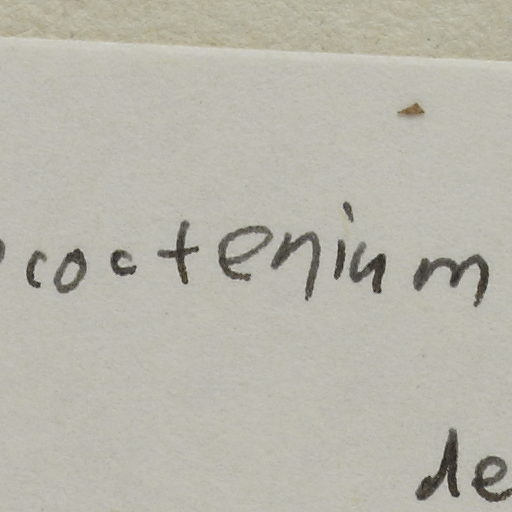 coctenium
de